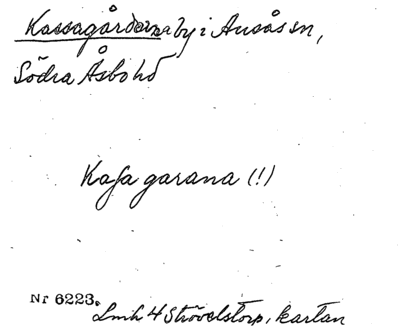 Kassagårdarna by i Ausås sn,
Södra Åsbo hd
Kasa garana (!)
Nr 6223.
Lmk 4 Strövelstorp, kartan